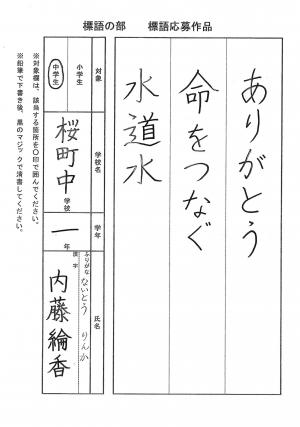 標語の部　標語応募作品
ありがとう
命をつなぐ
水道水
対象
小学生
中学生
学校名
桜町中学校
学年
一年
氏名
ふりがな
ないとう　りんか
漢字
内藤綸香
※対象欄は、該当する箇所を〇印で囲んでください。
※鉛筆で下書き後、黒のマジックで清書してください。